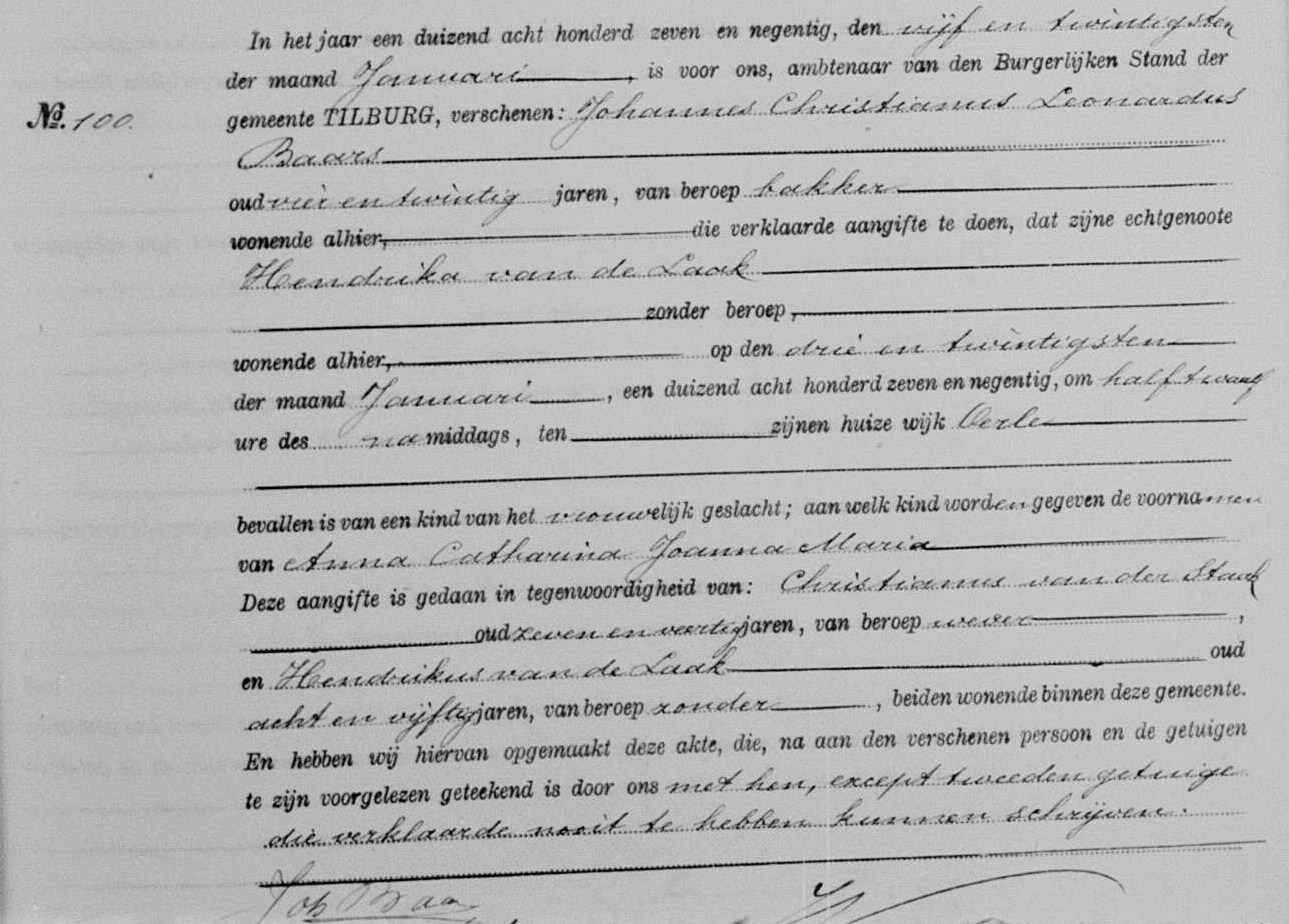 In het jaar een duizend acht honderd zeven en negentig, den vijf en twintigsten
der maand Januari, is voor ons, ambtenaar van den Burgerlijken Stand der
No. 100.
gemeente TILBURG, verschenen: Johannes Christianus Leonardus
Baars
oud vier en twintig jaren, van beroep bakker
wonende alhier, die verklaarde aangifte te doen, dat zijne echtgenoote
Hendrika van de Laak
zonder beroep,
wonende alhier, op den drie en twintigsten
der maand Januari, een duizend acht honderd zeven en negentig, om half twaalf
ure des namiddags, ten zijnen huize wijk Oerle
bevallen is van een kind van het vrouwelijk geslacht; aan welk kind worden gegeven de voornamen
van Anna Catharina Joanna Maria
Deze aangifte is gedaan in tegenwoordigheid van: Christianus van der Staak
oud zeven en veertig jaren, van beroep wever,
en Hendrikus van de Laak oud
acht en vijftig jaren, van beroep zonder, beiden wonende binnen deze gemeente.
En hebben wij hiervan opgemaakt deze akte, die, na aan den verschenen persoon en de getuigen
te zijn voorgelezen geteekend is door ons met hen, except tweeden getuige
die verklaarde nooit te hebben kunnen schrijven.